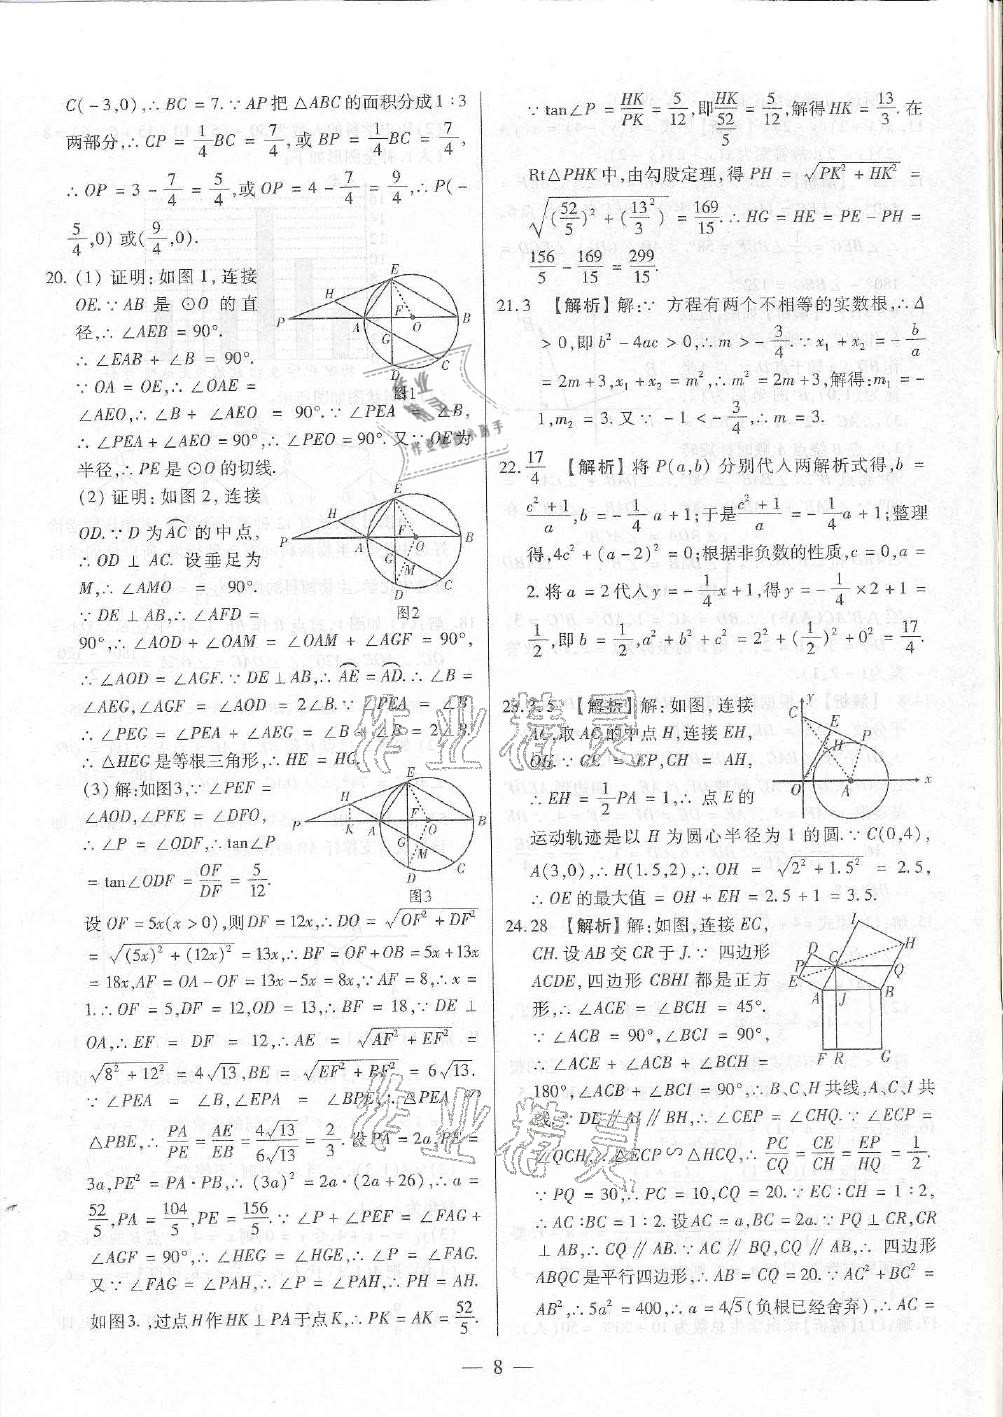 C(-3,0),∴BC=7.∵AP把△ABC的面积分成1:3
两部分,∴CP=1/4BC=7/4,或BP=1/4BC=7/4,
∴OP=3-7/4=5/4,或OP=4-7/4=9/4,∴P(-
5/4,0)或(9/4,0).
20.(1)证明:如图1,连接
OE.∵AB是⊙O的直
径,∴∠AEB=90°.
∴∠EAB+∠B=90°.
∵OA=OE,∴∠OAE=
∠AEO,∴∠B+∠AEO=90°.∵∠PEA=∠B,
∴∠PEA+∠AEO=90°,∴∠PEO=90°.又∵OE为
半径,∴PE是⊙O的切线.
H E P A F O B G D
图1
(2)证明:如图2,连接
OD.∵D为AC⌒的中点,
∴OD⊥AC.设垂足为
M,∴∠AMO=90°.
∵DE⊥AB,∴∠AFD=
90°,∴∠AOD+∠OAM=∠OAM+∠AGF=90°,
∴∠AOD=∠AGF.∵DE⊥AB,∴AE⌒=AD⌒.∴∠B=
∠AEG,∠AGF=∠AOD=2∠B.∵∠PEA=∠B,
∴∠PEG=∠PEA+∠AEG=∠B+∠B=2∠B.
∴△HEG是等根三角形,∴HE=HG.
H E P A F O B G M D C
图2
(3)解:如图3,∵∠PEF=
∠AOD,∠PFE=∠DFO,
∴∠P=∠ODF,∴tan∠P
=tan∠ODF=OF/DF=5/12.
H E P K A F O B G M D C
图3
设OF=5x(x>0),则DF=12x,∴DO=√(OF²+DF²)
=√((5x)²+(12x)²)=13x,∴BF=OF+OB=5x+13x
=18x,AF=OA-OF=13x-5x=8x,∵AF=8,∴x=
1.∴OF=5,DF=12,OD=13,∴BF=18,∵DE⊥
OA,∴EF=DF=12,∴AE=√(AF²+EF²)=
√(8²+12²)=4√13,BE=√(EF²+BF²)=6√13.
∵∠PEA=∠B,∠EPA=∠BPE,∴△PEA∽
△PBE,∴PA/PE=AE/EB=4√13/6√13=2/3.设PA=2a,PE=
3a,PE²=PA·PB,∴(3a)²=2a·(2a+26),∴a=
52/5,PA=104/5,PE=156/5.∵∠P+∠PEF=∠FAG+
∠AGF=90°,∴∠HEG=∠HGE,∴∠P=∠FAG.
又∵∠FAG=∠PAH,∴∠P=∠PAH,∴PH=AH.
如图3.,过点H作HK⊥PA于点K,∴PK=AK=52/5.
∵tan∠P=HK/PK=5/12,即HK/(52/5)=5/12,解得HK=13/3.在
Rt△PHK中,由勾股定理,得PH=√(PK²+HK²)=
√((52/5)²+(13²/3)=169/15.∴HG=HE=PE-PH=
156/5-169/15=299/15.
21.3 【解析】解:∵方程有两个不相等的实数根,∴△
>0,即b²-4ac>0,∴m>-3/4.∵x₁+x₂=-b/a
=2m+3,x₁+x₂=m²,∴m²=2m+3,解得:m₁=-
1,m₂=3.又∵-1<-3/4,∴m=3.
22.17/4 【解析】将P(a,b)分别代入两解析式得,b=
(c²+1)/a,b=-1/4a+1;于是(c²+1)/a=-1/4a+1;整理
得,4c²+(a-2)²=0;根据非负数的性质,c=0,a=
2.将a=2代入y=-1/4x+1,得y=-1/4×2+1=
1/2,即b=1/2,a²+b²+c²=2²+(1/2)²+0²=17/4.
23.3.5 【解析】解:如图,连接
AC,取AC的中点H,连接EH,
OH.∵CE=EP,CH=AH,
∴EH=1/2PA=1,∴点E的
运动轨迹是以H为圆心半径为1的圆.∵C(0,4),
A(3,0),∴H(1.5,2),∴OH=√(2²+1.5²)=2.5,
∴OE的最大值=OH+EH=2.5+1=3.5.
y C E H P O A x
24.28 【解析】解:如图,连接EC,
CH.设AB交CR于J.∵四边形
ACDE,四边形CBHI都是正方
形,∴∠ACE=∠BCH=45°.
∵∠ACB=90°,∠BCI=90°,
∴∠ACE+∠ACB+∠BCH=
180°,∠ACB+∠BCI=90°.∴B、C、H共线,A、C、I共
线.∵DE∥AI∥BH,∴∠CEP=∠CHQ.∵∠ECP=
∠QCH,∴△ECP∽△HCQ,∴PC/CQ=CE/CH=EP/HQ=1/2.
∵PQ=30,∴PC=10,CQ=20.∵EC:CH=1:2,
∴AC:BC=1:2.设AC=a,BC=2a.∵PQ⊥CR,CR
⊥AB,∴CQ∥AB.∵AC∥BQ,CQ∥AB,∴四边形
ABQC是平行四边形,∴AB=CQ=20.∵AC²+BC²=
AB²,∴5a²=400,∴a=4√5(负根已经舍弃),∴AC=
I H D C P Q E A J B F R G
— 8 —
作业精灵
作业精灵